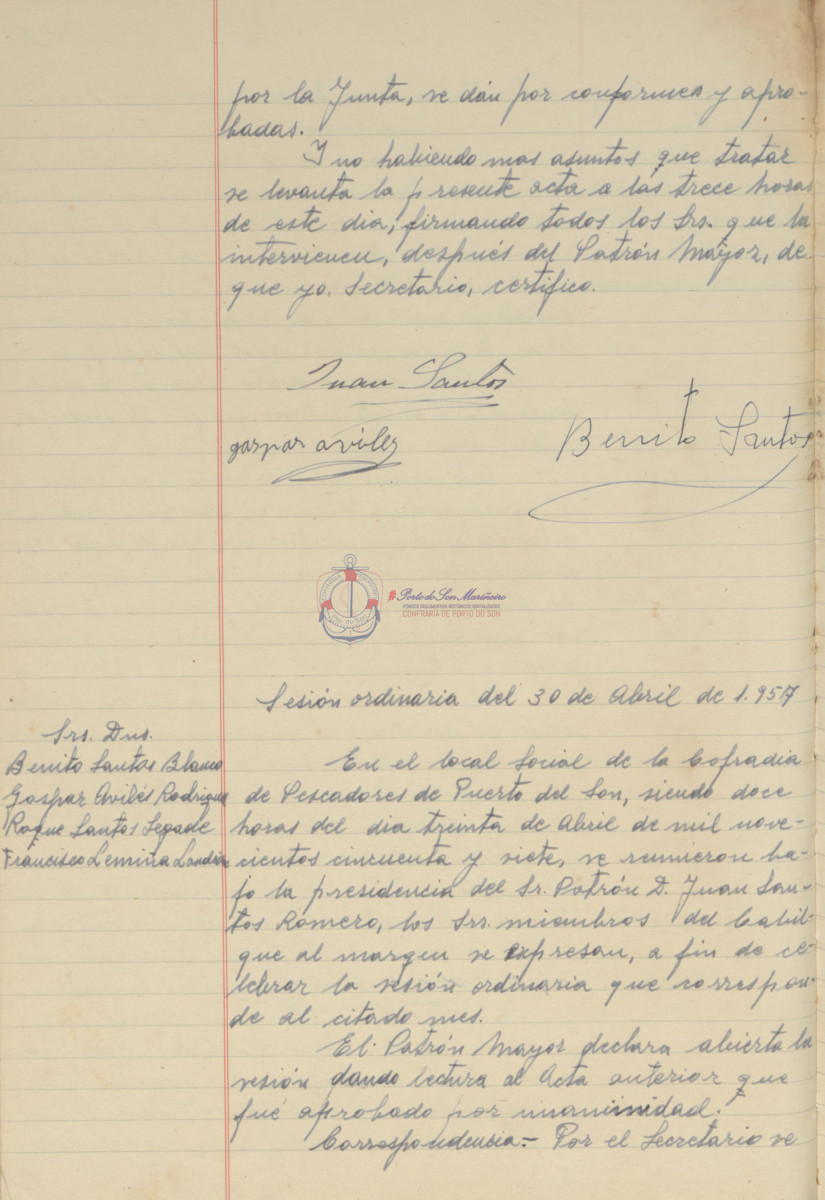 por la Junta, se dán por conformes y apro-
badas.
Y no habiendo mas asuntos que tratar
se levanta la presente acta a las trece horas
de este dia, firmando todos los Srs. que la
intervienen, después del Patrón Mayor, de
que yo. Secretario, certifico.
Juan Santos
gaspar aviles
Benito Santos
COFRADIA PESCADORES
Pto. do Son
Porto do Son Mariñeiro
FONDOS DOCUMENTAIS HISTÓRICOS DIXITALIZADOS
CONFRARÍA DE PORTO DO SON
Sesión ordinaria del 30 de Abril de 1.957
Srs. Dns.
Benito Santos Blanco
Gaspar Avilés Rodrigue
Roque Santos Segade
Francisco Lemiña
En el local Social de la Cofradia
de Pescadores de Puerto del Son, siendo doce
horas del dia treinta de Abril de mil nove-
cientos cincuenta y siete, se reunieron ba-
jo la presidencia del Sr. Patrón D. Juan San-
tos Romero, los Srs. miembros del Cabil-
que al margen se expresan, a fin de ce-
lebrar la sesión ordinaria que correspon-
de al citado mes.
El Patrón Mayor declara abierta la
sesión dando lectura al Acta anterior que
fué aprobado por unanimidad.
Correspondencia.- Por el Secretario se